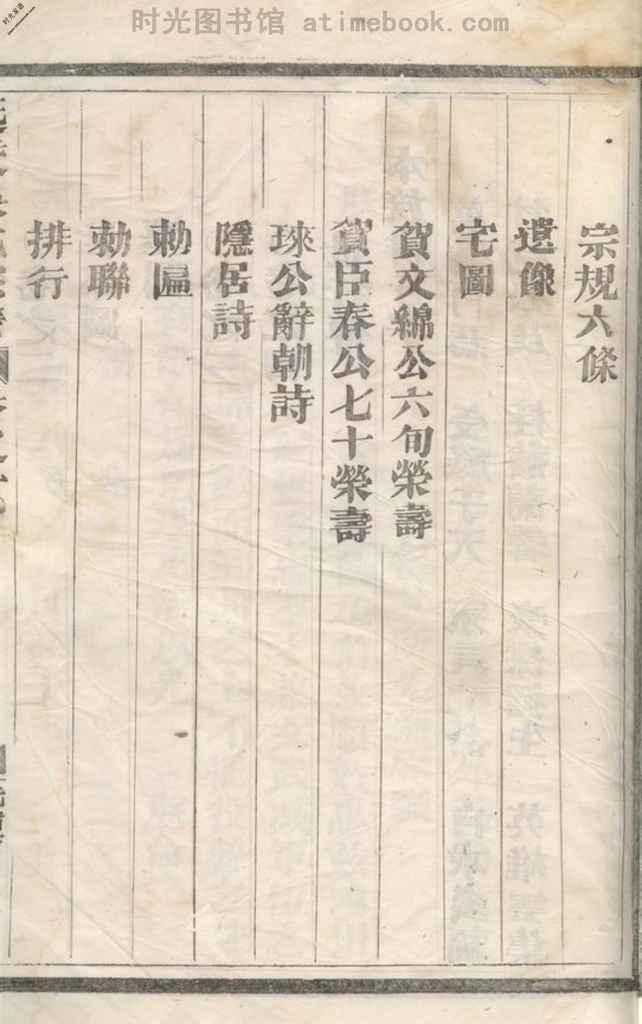 时光图书馆 atimebook.com
宗規六條
遺像
宅圖
賀文綿公六旬榮壽
賀臣春公七十榮壽
琜公辭朝詩
隱居詩
勅匾
勅聯
排行